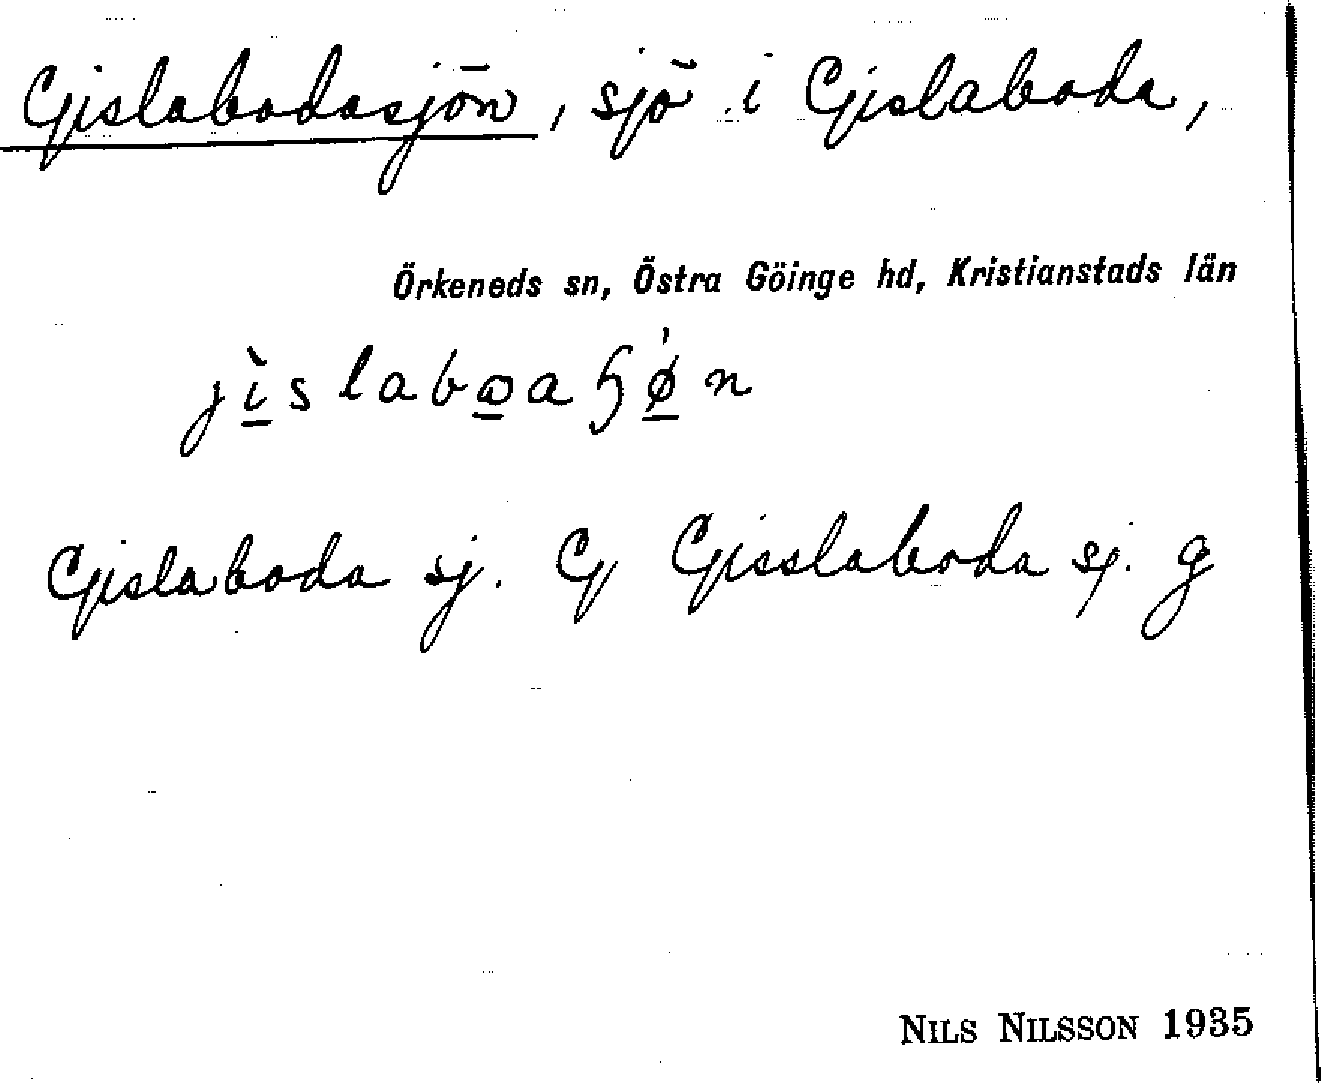 Gislabodasjön, sjö i Gislaboda,
Örkeneds sn, Östra Göinge hd, Kristianstads län
Gislaboda sj. G Gisslaboda sj. g
NILS NILSSON 1935